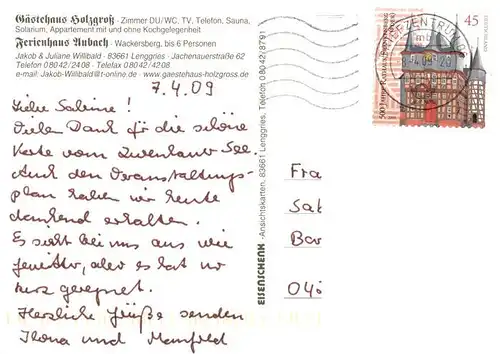 Gästehaus Holzgroß - Zimmer DU/WC, TV, Telefon, Sauna,
Solarium, Appartement mit und ohne Kochgelegenheit
Ferienhaus Aubach - Wackersberg, bis 6 Personen
Jakob & Juliane Willibald · 83661 Lenggries · Jachenauerstraße 62
Telefon 08042/2408 · Telefax 08042/4208
e-mail: Jakob-Willibald@t-online.de · www.gaestehaus-holzgross.de
7.4.09
Liebe Sabine!
Vielen Dank für die schöne
Karte vom Zwenkauer See.
Auch den Veranstaltungs-
plan haben wir heute
dankend erhalten.
Es sieht bei uns aus wie
Gewitter, aber es hat nur
kurz geregnet.
Herzliche Grüße senden
Ilona und Manfred
EISENSCHENK - Ansichtskarten, 83661 Lenggries, Telefon 08042/8791
Fra
Sab
Bar
04
BRIEFZENTRUM
45
DEUTSCHLAND
500 Jahre Rathaus Frankenberg (Eder)